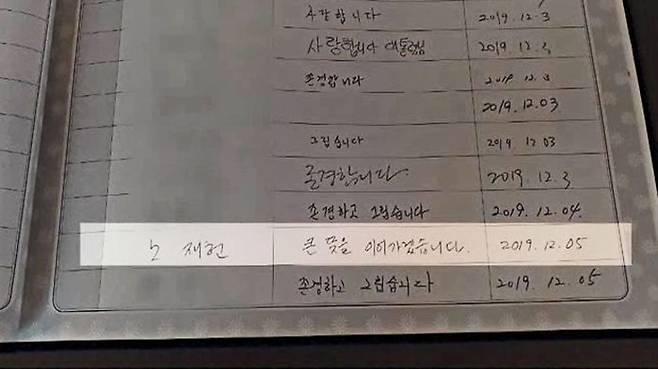 사랑합니다 2019.12.3
사랑합니다 대통령님 2019.12.3
존경합니다 2019.12.3
2019.12.03
그립습니다 2019.12.03
존경합니다. 2019.12.3
존경하고 그립습니다 2019.12.04.
노재헌 큰 뜻을 이어가겠습니다. 2019.12.05
존경하고 그립습니다 2019.12.05